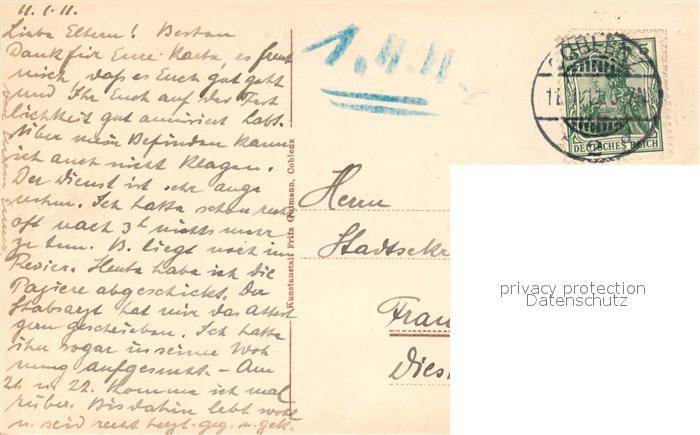 11.1.11.
Liebe Eltern! Besten
Dank für Eure Karte, es freut
mich, daß es Euch gut geht
und Ihr Euch auf der Fest
lichkeit gut amüsiert habt.
Über mein Befinden kann
ich auch nicht klagen.
Der Dienst ist sehr ange
nehm. Ich hatte schon recht
oft nach 3h nichts mehr
zu tun. B. liegt noch im
Revier. Heute habe ich die
Papiere abgeschickt. Der
Stabsarzt hat mir das Attest
gern geschrieben. Ich hatte
ihn sogar in seiner Woh
nung aufgesucht. – Am
21. u. 22. komme ich mal
rüber. Bis dahin lebt wohl
u. seid recht herzl. geg. u. gek.
Kunstanstalt Fritz Gutmann, Coblenz
1.11.11.
COBLENZ
DEUTSCHES REICH
Herrn
Stadtsekr
Fran
Diest
privacy protection
Datenschutz